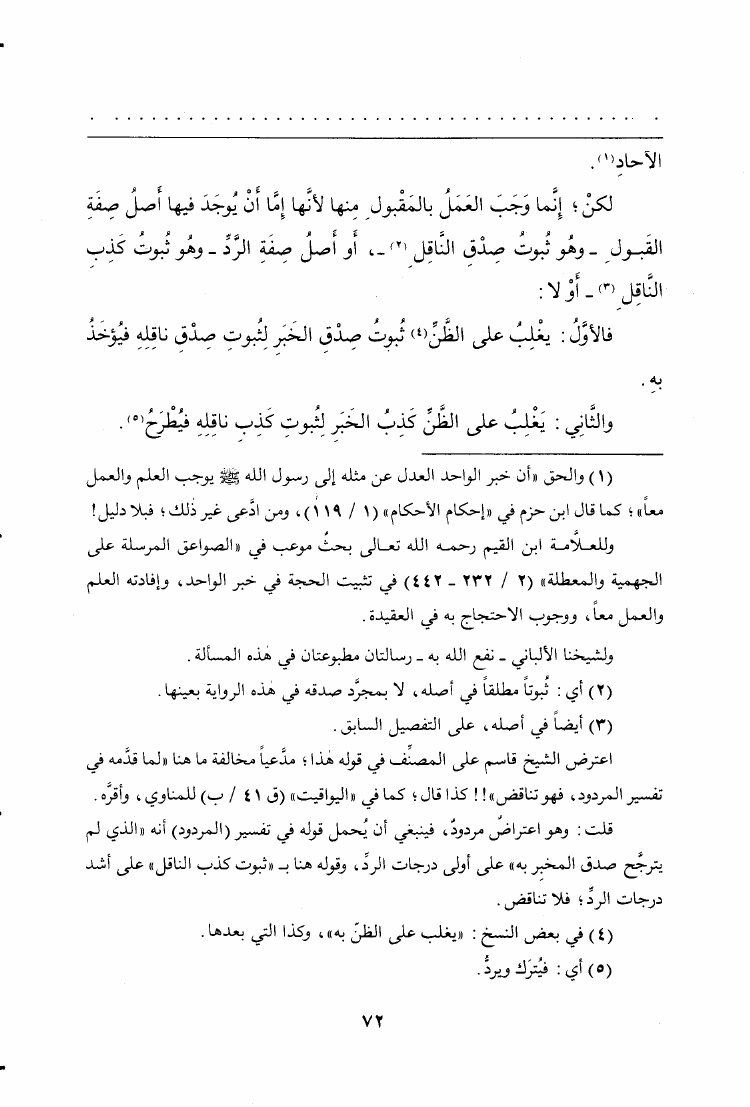 الآحادِ(١).
لكنْ؛ إِنَّما وَجَبَ العَمَلُ بالمَقْبولِ منها لأنَّها إِمَّا أَنْ يُوجَدَ فيها أَصلُ صِفَةِ
القَبولِ ـ وهُو ثُبوتُ صِدْقِ النَّاقِلِ(٢) ـ، أَو أَصلُ صِفَةِ الرَّدِّ ـ وهُو ثُبوتُ كَذِبِ
النَّاقِلِ(٣) ـ أَوْ لا:
فالأوَّلُ: يغْلِبُ على الظَّنِّ(٤) ثُبوتُ صِدْقِ الخَبَرِ لِثُبوتِ صِدْقِ ناقِلِهِ فيُؤخَذُ
بِهِ.
والثَّانِي: يَغْلِبُ على الظَّنِّ كَذِبُ الخَبَرِ لِثُبوتِ كَذِبِ ناقِلِهِ فيُطْرَحُ(٥).
(١) والحق «أن خبر الواحد العدل عن مثله إلى رسول الله ﷺ يوجب العلم والعمل
معاً»؛ كما قال ابن حزم في «إحكام الأحكام» (١ / ١١٩)، ومن ادَّعى غير ذلك؛ فبلا دليل!
وللعلَّامة ابن القيم رحمه الله تعالى بحثٌ موعب في «الصواعق المرسلة على
الجهمية والمعطلة» (٢ / ٢٣٢ ـ ٤٤٢) في تثبيت الحجة في خبر الواحد، وإفادته العلم
والعمل معاً، ووجوب الاحتجاج به في العقيدة.
ولشيخنا الألباني ـ نفع الله به ـ رسالتان مطبوعتان في هذه المسألة.
(٢) أي: ثُبوتاً مطلقاً في أصله، لا بمجرَّد صدقه في هذه الرواية بعينها.
(٣) أيضاً في أصله، على التفصيل السابق.
اعترض الشيخ قاسم على المصنِّف في قوله هذا؛ مدَّعياً مخالفة ما هنا «لما قدَّمه في
تفسير المردود، فهو تناقض»!! كذا قال؛ كما في «اليواقيت» (ق ٤١ / ب) للمناوي، وأقرَّه.
قلت: وهو اعتراضٌ مردودٌ، فينبغي أن يُحمل قوله في تفسير (المردود) أنه «الذي لم
يترجَّح صدق المخبر به» على أولى درجات الردِّ، وقوله هنا بـ «ثبوت كذب الناقل» على أشد
درجات الردِّ؛ فلا تناقض.
(٤) في بعض النسخ: «يغلب على الظنّ به»، وكذا التي بعدها.
(٥) أي: فيُترَك ويردُّ.
٧٢